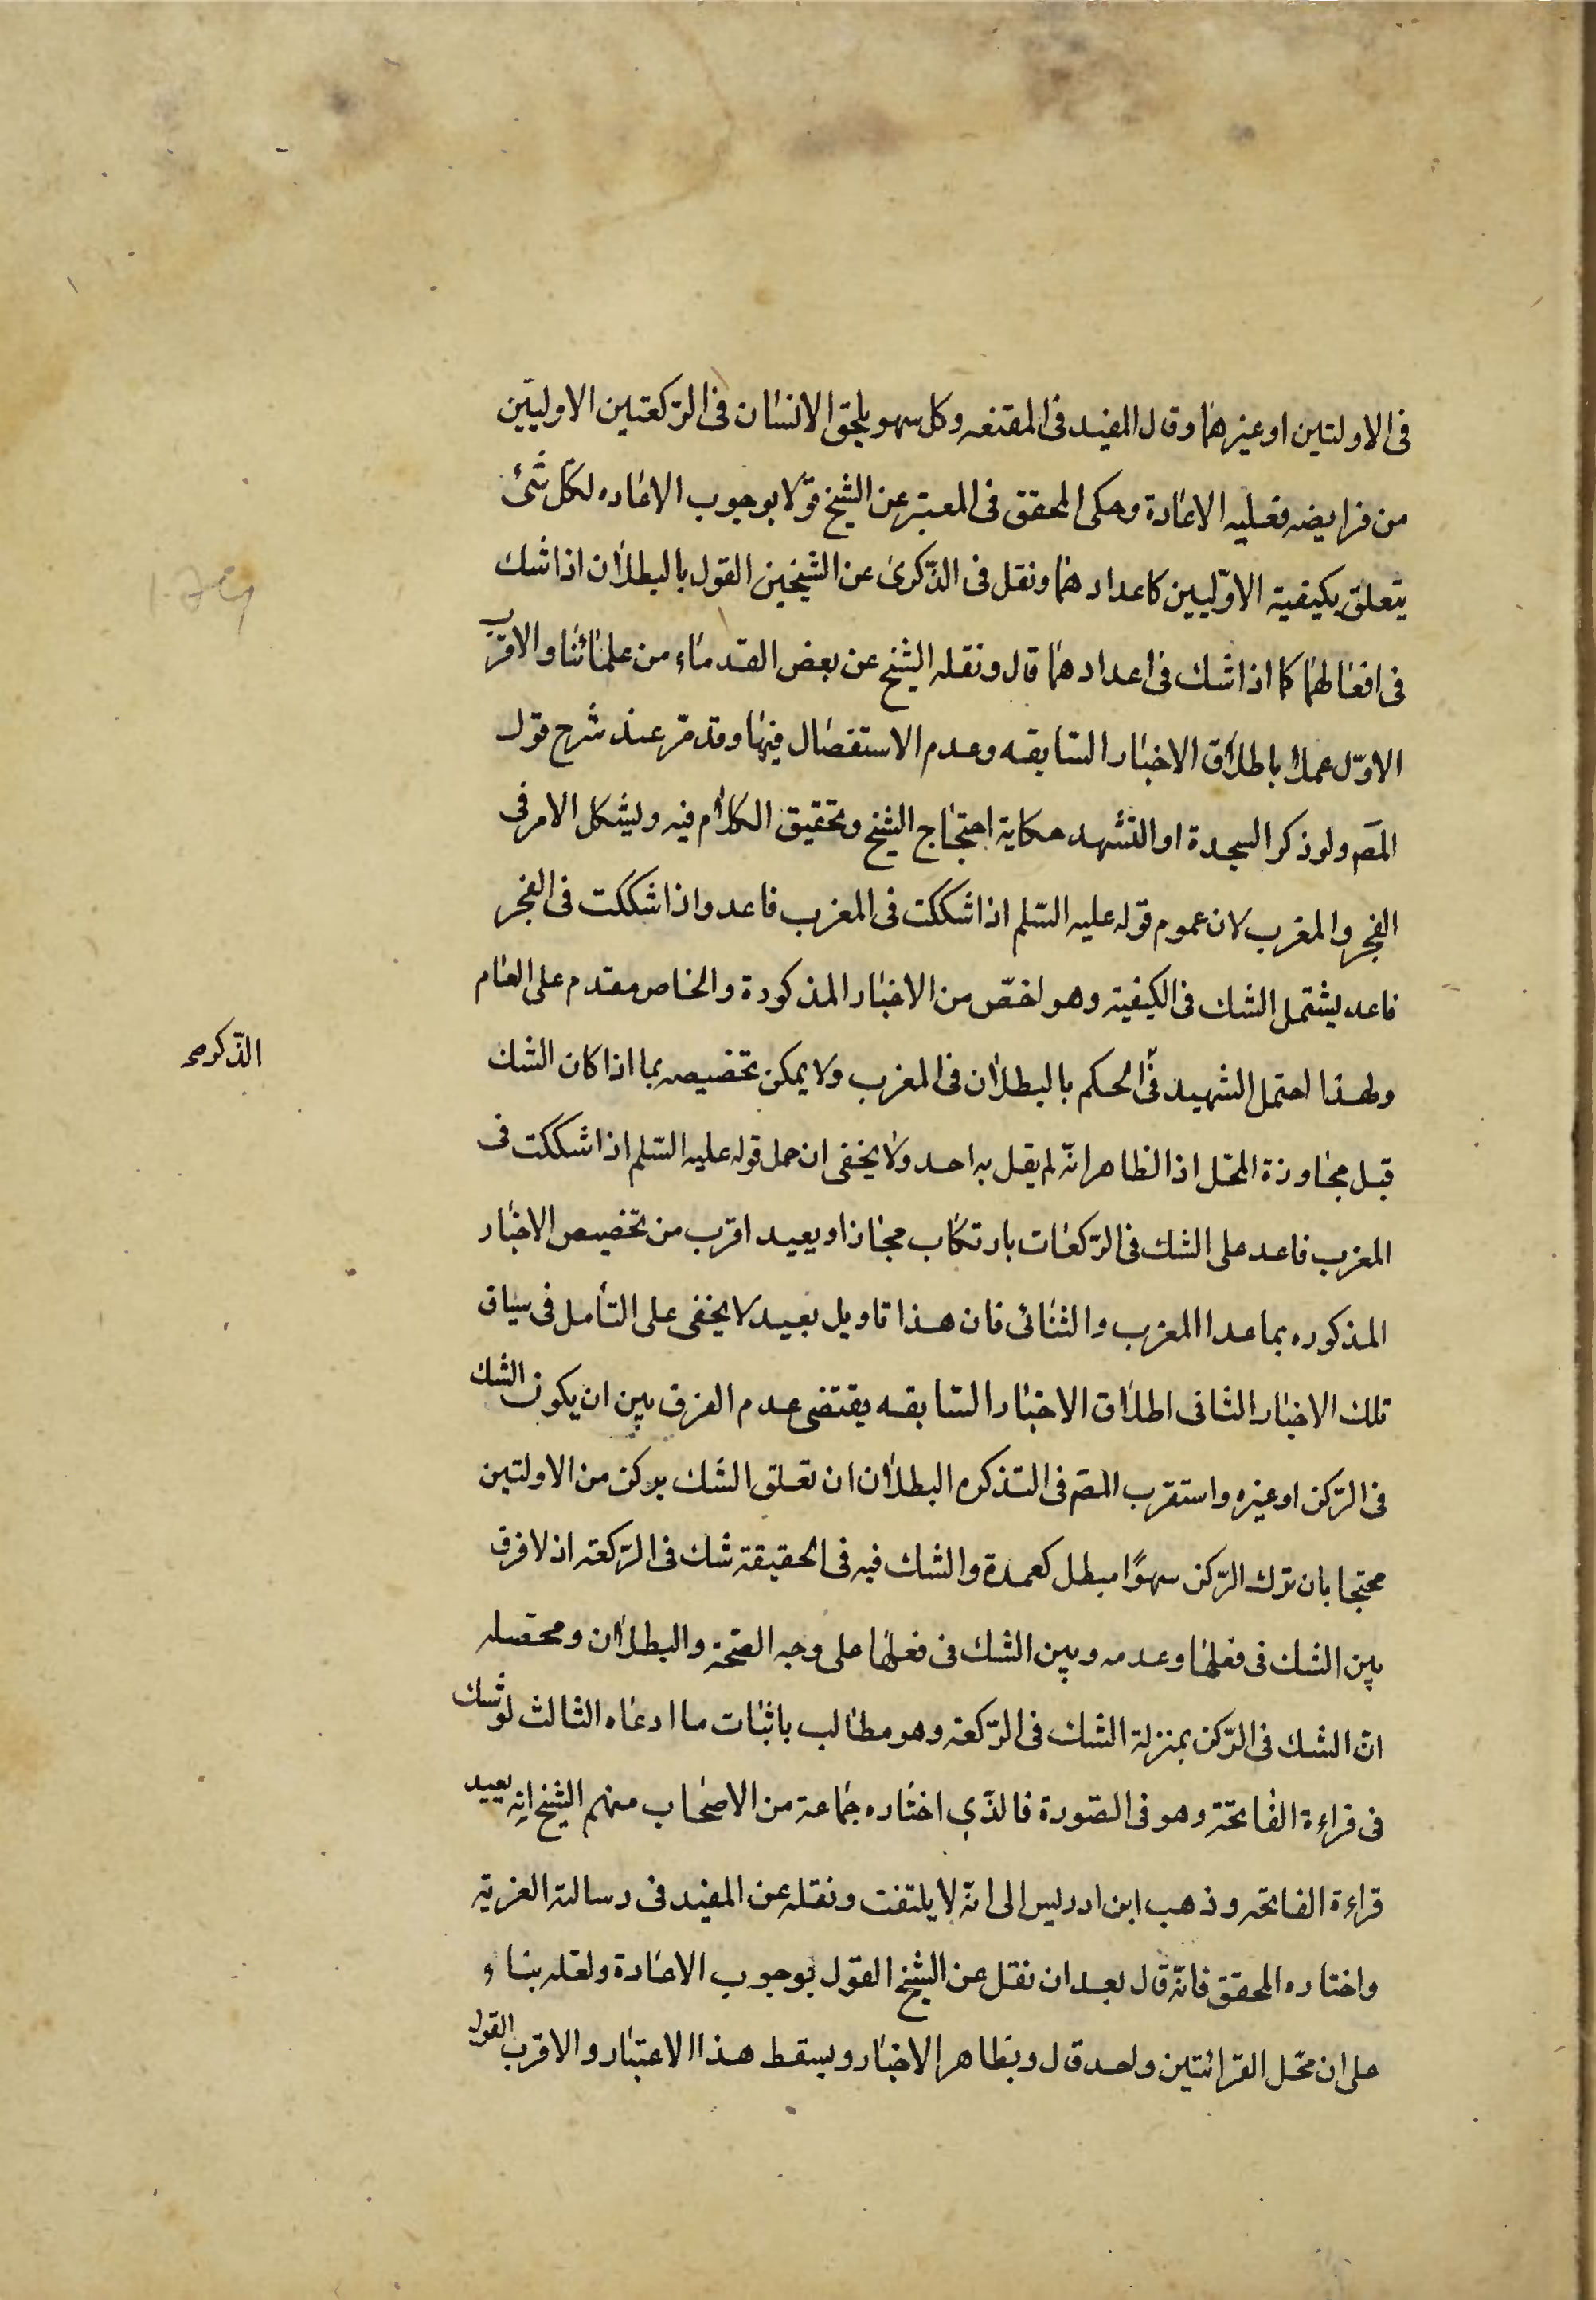 فى الاولتين او غيرهما وقال المفيد فى المقنعه وكل سهو يلحق الانسان فى الركعتين الاوليين
من فرايضه فعليه الاعادة وحكى المحقق فى المعتبر عن الشيخ قولا بوجوب الاعاده لكل شئ
يتعلق بكيفية الاوليين كاعدادهما ونقل فى الذكرى عن الشيخين القول بالبطلان اذا شك
فى افعالهما كما اذا شك فى اعدادهما قال ونقله الشيخ عن بعض القدماء من علمائنا والاقرب
الاول عملا باطلاق الاخبار السابقه وعدم الاستفصال فيها وقد مر عند شرح قول
المصَ ولو ذكر السجدة او التشهد حكاية احتجاج الشيخ وتحقيق الكلام فيه ويشكل الامر فى
الفجر والمغرب لان عموم قوله عليه السلم اذا شككت فى المغرب فاعد واذا شككت فى الفجر
فاعد يشتمل الشك فى الكيفية وهو اخص من الاخبار المذكورة والخاص مقدم على العام
ولهذا احتمل الشهيد فى الحكم بالبطلان فى المغرب ولا يمكن تخصيصه بما اذا كان الشك
الذكرى صح
قبل مجاوزة المحل اذ الظاهر انه لم يقل به احد ولا يخفى ان حمل قوله عليه السلم اذا شككت فى
المغرب فاعد على الشك فى الركعات بارتكاب مجاز او بعيد اقرب من تخصيص الاخبار
المذكوره بما عدا المغرب والثنائى فان هذا تاويل بعيد لا يخفى على التأمل فى سياق
تلك الاخبار الثانى اطلاق الاخبار السابقه يقتضى عدم الفرق بين ان يكون الشك
فى الركن او غيره واستقرب المصَ فى التذكره البطلان ان تعلق الشك بركن من الاولتين
محتجا بان ترك الركن سهوًا مبطل كعمدة والشك فيه فى الحقيقة شك فى الركعة اذ لا فرق
بين الشك فى فعلها وعدمه وبين الشك فى فعلها على وجه الصحة والبطلان ومحصله
ان الشك فى الركن بمنزلة الشك فى الركعة وهو مطالب باثبات ما ادعاه الثالث لو شك
فى قراءة الفاتحة وهو فى السورة فالذي اختاره جماعة من الاصحاب منهم الشيخ انه يعيد
قراءة الفاتحه وذهب ابن ادريس الى انه لا يلتفت ونقله عن المفيد فى رسالته العزية
واختاره المحقق فانه قال بعد ان نقل عن الشيخ القول بوجوب الاعادة ولعله بناء
على ان محل القرائتين واحد قال وبظاهر الاخبار ويسقط هذا الاعتبار والاقرب القول